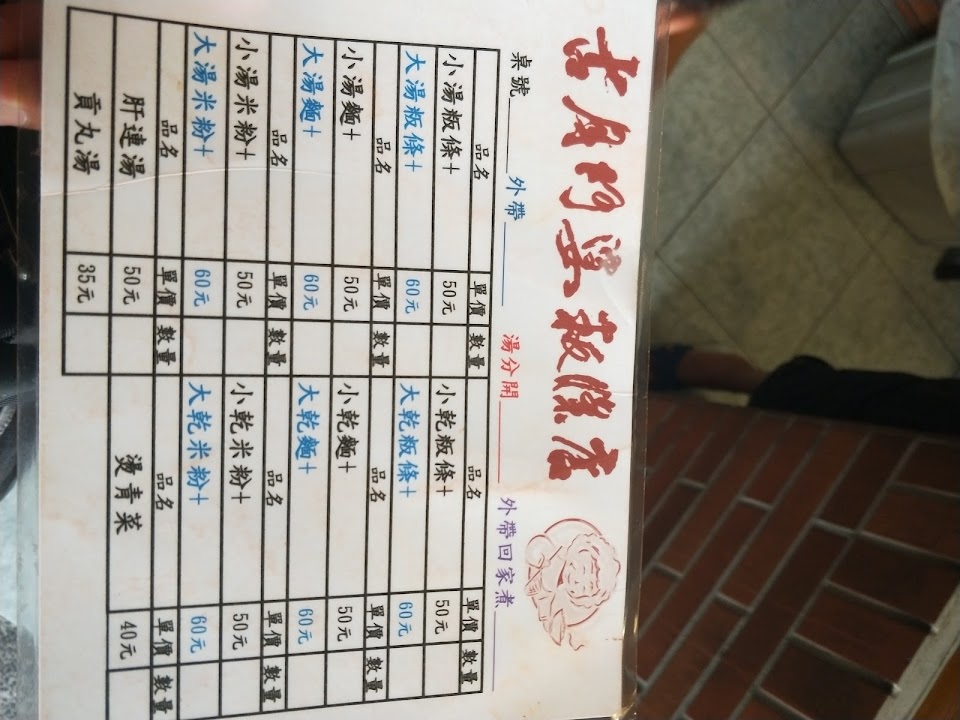 粄條店
桌號 外帶 湯分開 外帶回家煮
品名 單價 數量 品名 單價 數量
小湯粄條+ 50元 小乾粄條+ 50元
大湯粄條+ 60元 大乾粄條+ 60元
品名 單價 數量 品名 單價 數量
小湯麵+ 50元 小乾麵+ 50元
大湯麵+ 60元 大乾麵+ 60元
品名 單價 數量 品名 單價 數量
小湯米粉+ 50元 小乾米粉+ 50元
大湯米粉+ 60元 大乾米粉+ 60元
品名 單價 數量 品名 單價 數量
肝連湯 50元 燙青菜 40元
貢丸湯 35元